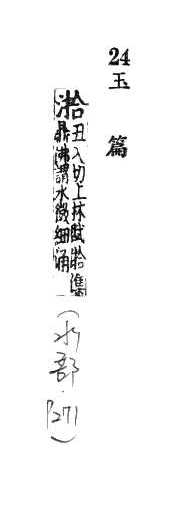 24 玉篇
湁
丑入切上林賦湁潗
鼎沸謂水微細涌
(水部.P271)